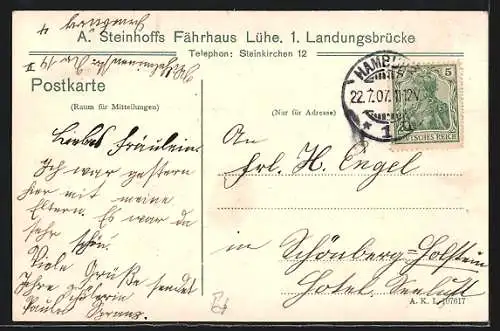 A. Steinhoffs Fährhaus Lühe, 1. Landungsbrücke
Telephon: Steinkirchen 12
Postkarte
(Raum für Mitteilungen)
(Nur für Adresse)
HAMBURG
22.7.07. 11-12V.
* 1
5
DEUTSCHES REICH
Liebes Fräulein.
Ich war gestern
hier mit meine
Eltern. Es war da
sehr schön.
Viele Grüße sendet
Ihre Schülerin
Paula
An
Frl. H. Engel
in Schönberg=Holstein
Hotel Seelust
A. K. L. 107617